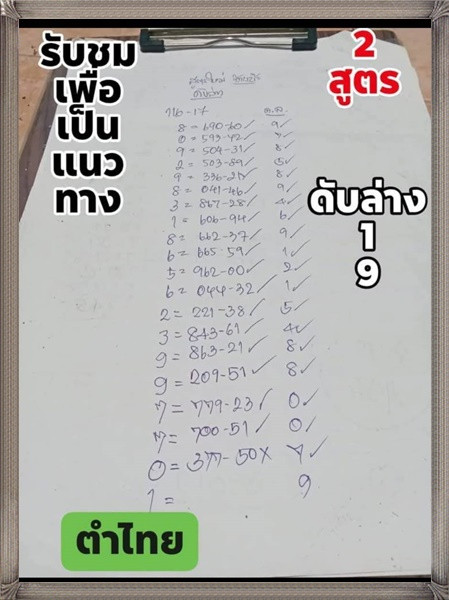 รับชม
เพื่อ
เป็น
แนว
ทาง
2
สูตร
ดับล่าง
1
9
ดับล่าง
16-17
8 = 690-60 ✓ 9 ✓
0 = 593-42 ✓ 7 ✓
9 = 504-31 ✓ 8 ✓
2 = 503-89 ✓ 5 ✓
9 = 336-21 ✓ 8 ✓
8 = 041-46 ✓ 9 ✓
3 = 867-28 ✓ 4 ✓
1 = 606-94 ✓ 6 ✓
8 = 662-37 ✓ 9 ✓
6 = 665-59 ✓ 1 ✓
5 = 962-00 ✓ 2 ✓
6 = 044-32 ✓ 1 ✓
2 = 221-38 ✓ 5 ✓
3 = 843-61 ✓ 4 ✓
9 = 863-21 ✓ 8 ✓
9 = 209-51 ✓ 8 ✓
7 = 779-23 ✓ 0 ✓
7 = 700-51 ✓ 0 ✓
0 = 377-50 X 7 ✓
1 = 9
ตำไทย